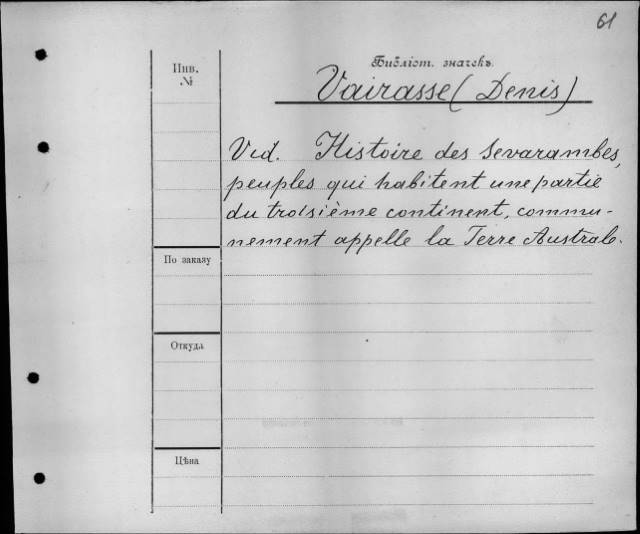 61
Библіот. значекъ
Инв.
№
Vairasse (Denis)
Vid. Histoire des Sevarambes,
peuples qui habitent une partie
du troisième continent, commu-
nement appelle la Terre Australe.
По заказу
Откуда
Цѣна